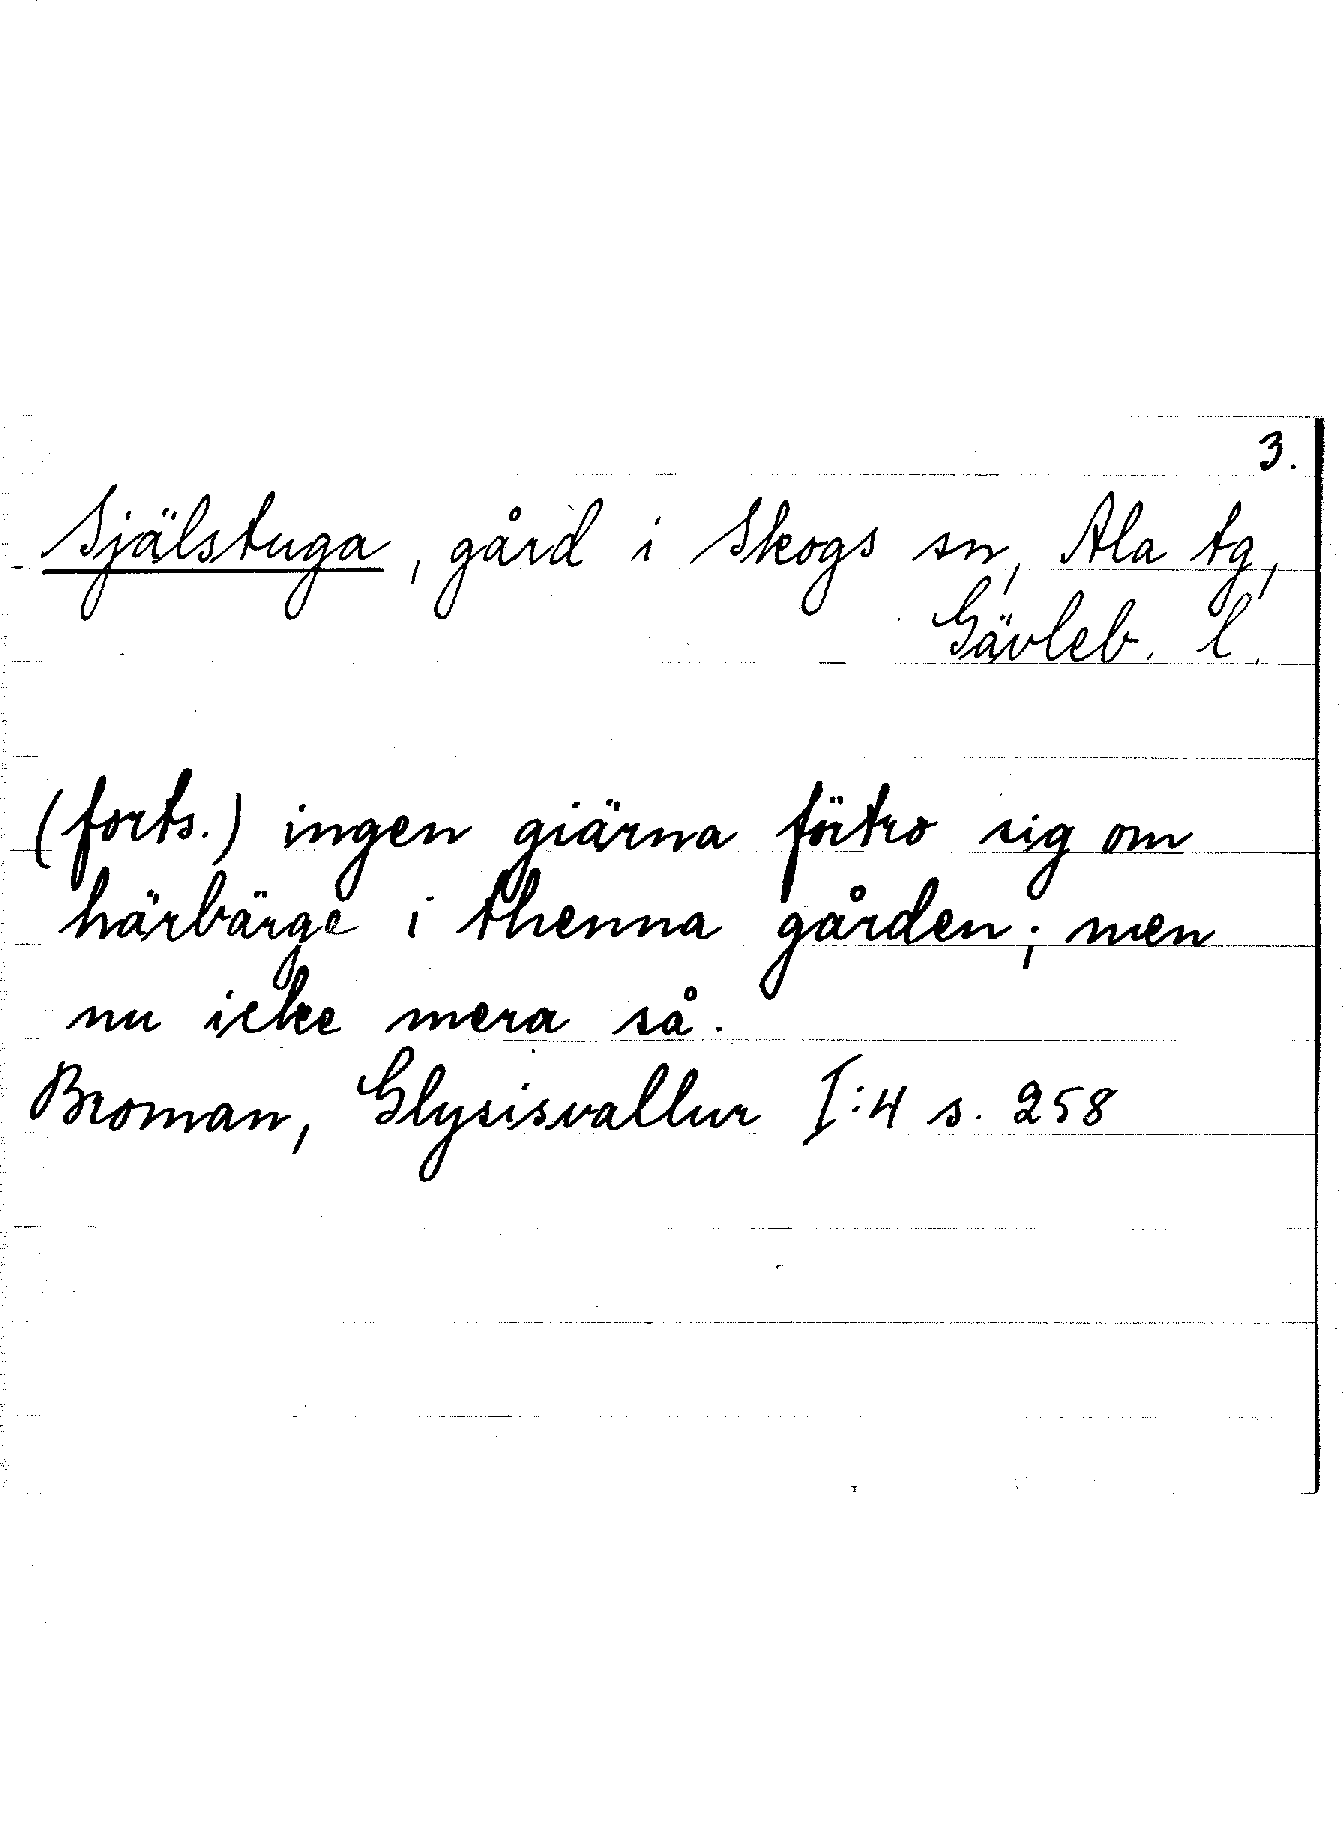 3.
Själstuga, gård i Skogs sn, Ala tg,
Gävleb. l.
(forts.) ingen giärna förtro sig om
härbärge i thenna gården; men
nu icke mera så.
Broman, Glysisvallur I:4 s. 258